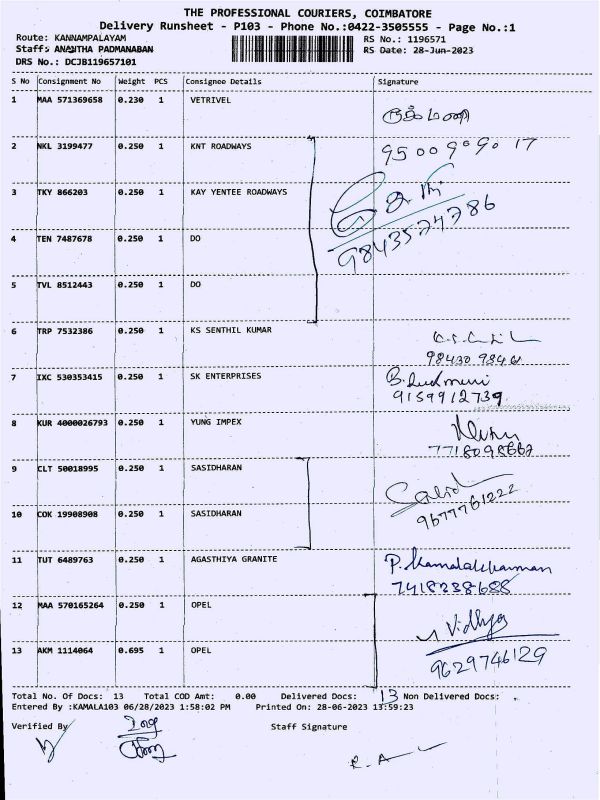 THE PROFESSIONAL COURIERS, COIMBATORE
Delivery Runsheet - P103 - Phone No.:0422-3505555 - Page No.:1
Route: KANNAMPALAYAM RS No.: 1196571
Staff: ANANTHA PADMANABAN RS Date: 28-Jun-2023
DRS No.: DCJB119657101
S No Consignment No Weight PCS Consignee Details Signature
1 MAA 571369658 0.230 1 VETRIVEL
2 NKL 3199477 0.250 1 KNT ROADWAYS 9500909017
3 TKY 866203 0.250 1 KAY YENTEE ROADWAYS
9843574786
4 TEN 7487678 0.250 1 DO
5 TVL 8512443 0.250 1 DO
6 TRP 7532386 0.250 1 KS SENTHIL KUMAR
7 IXC 530353415 0.250 1 SK ENTERPRISES
9159912739
8 KUR 4000026793 0.250 1 YUNG IMPEX
7718098662
9 CLT 50018995 0.250 1 SASIDHARAN
10 COK 19908908 0.250 1 SASIDHARAN
9677761222
11 TUT 6489763 0.250 1 AGASTHIYA GRANITE
7418238688
12 MAA 570165264 0.250 1 OPEL Vidhya
13 AKM 1114064 0.695 1 OPEL 9629746129
Total No. Of Docs: 13 Total COD Amt: 0.00 Delivered Docs: 13 Non Delivered Docs:
Entered By :KAMALA103 06/28/2023 1:58:02 PM Printed On: 28-06-2023 13:59:23
Verified By Staff Signature
R. A